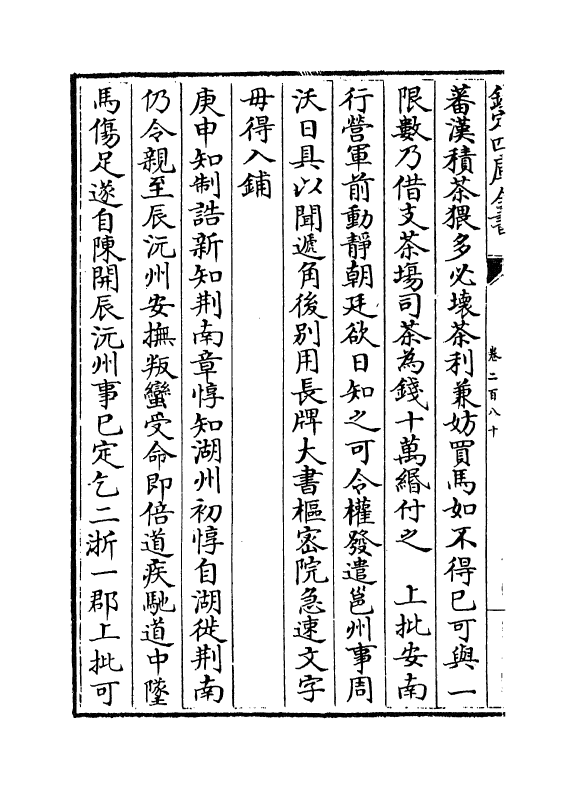 欽定四庫全書
卷二百八十
蕃漢積茶猥多必壊茶利兼妨買馬如不得已可與一
限數乃借支茶塲司茶為錢十萬緡付之　上批安南
行營軍前動靜朝廷欲日知之可令權發遣邕州事周
沃日具以聞遞角後别用長牌大書樞密院急速文字
毋得入鋪
庚申知制誥新知荆南章惇知湖州初惇自湖徙荆南
仍令親至辰沅州安撫叛蠻受命即倍道疾馳道中墜
馬傷足遂自陳開辰沅州事已定乞二浙一郡上批可